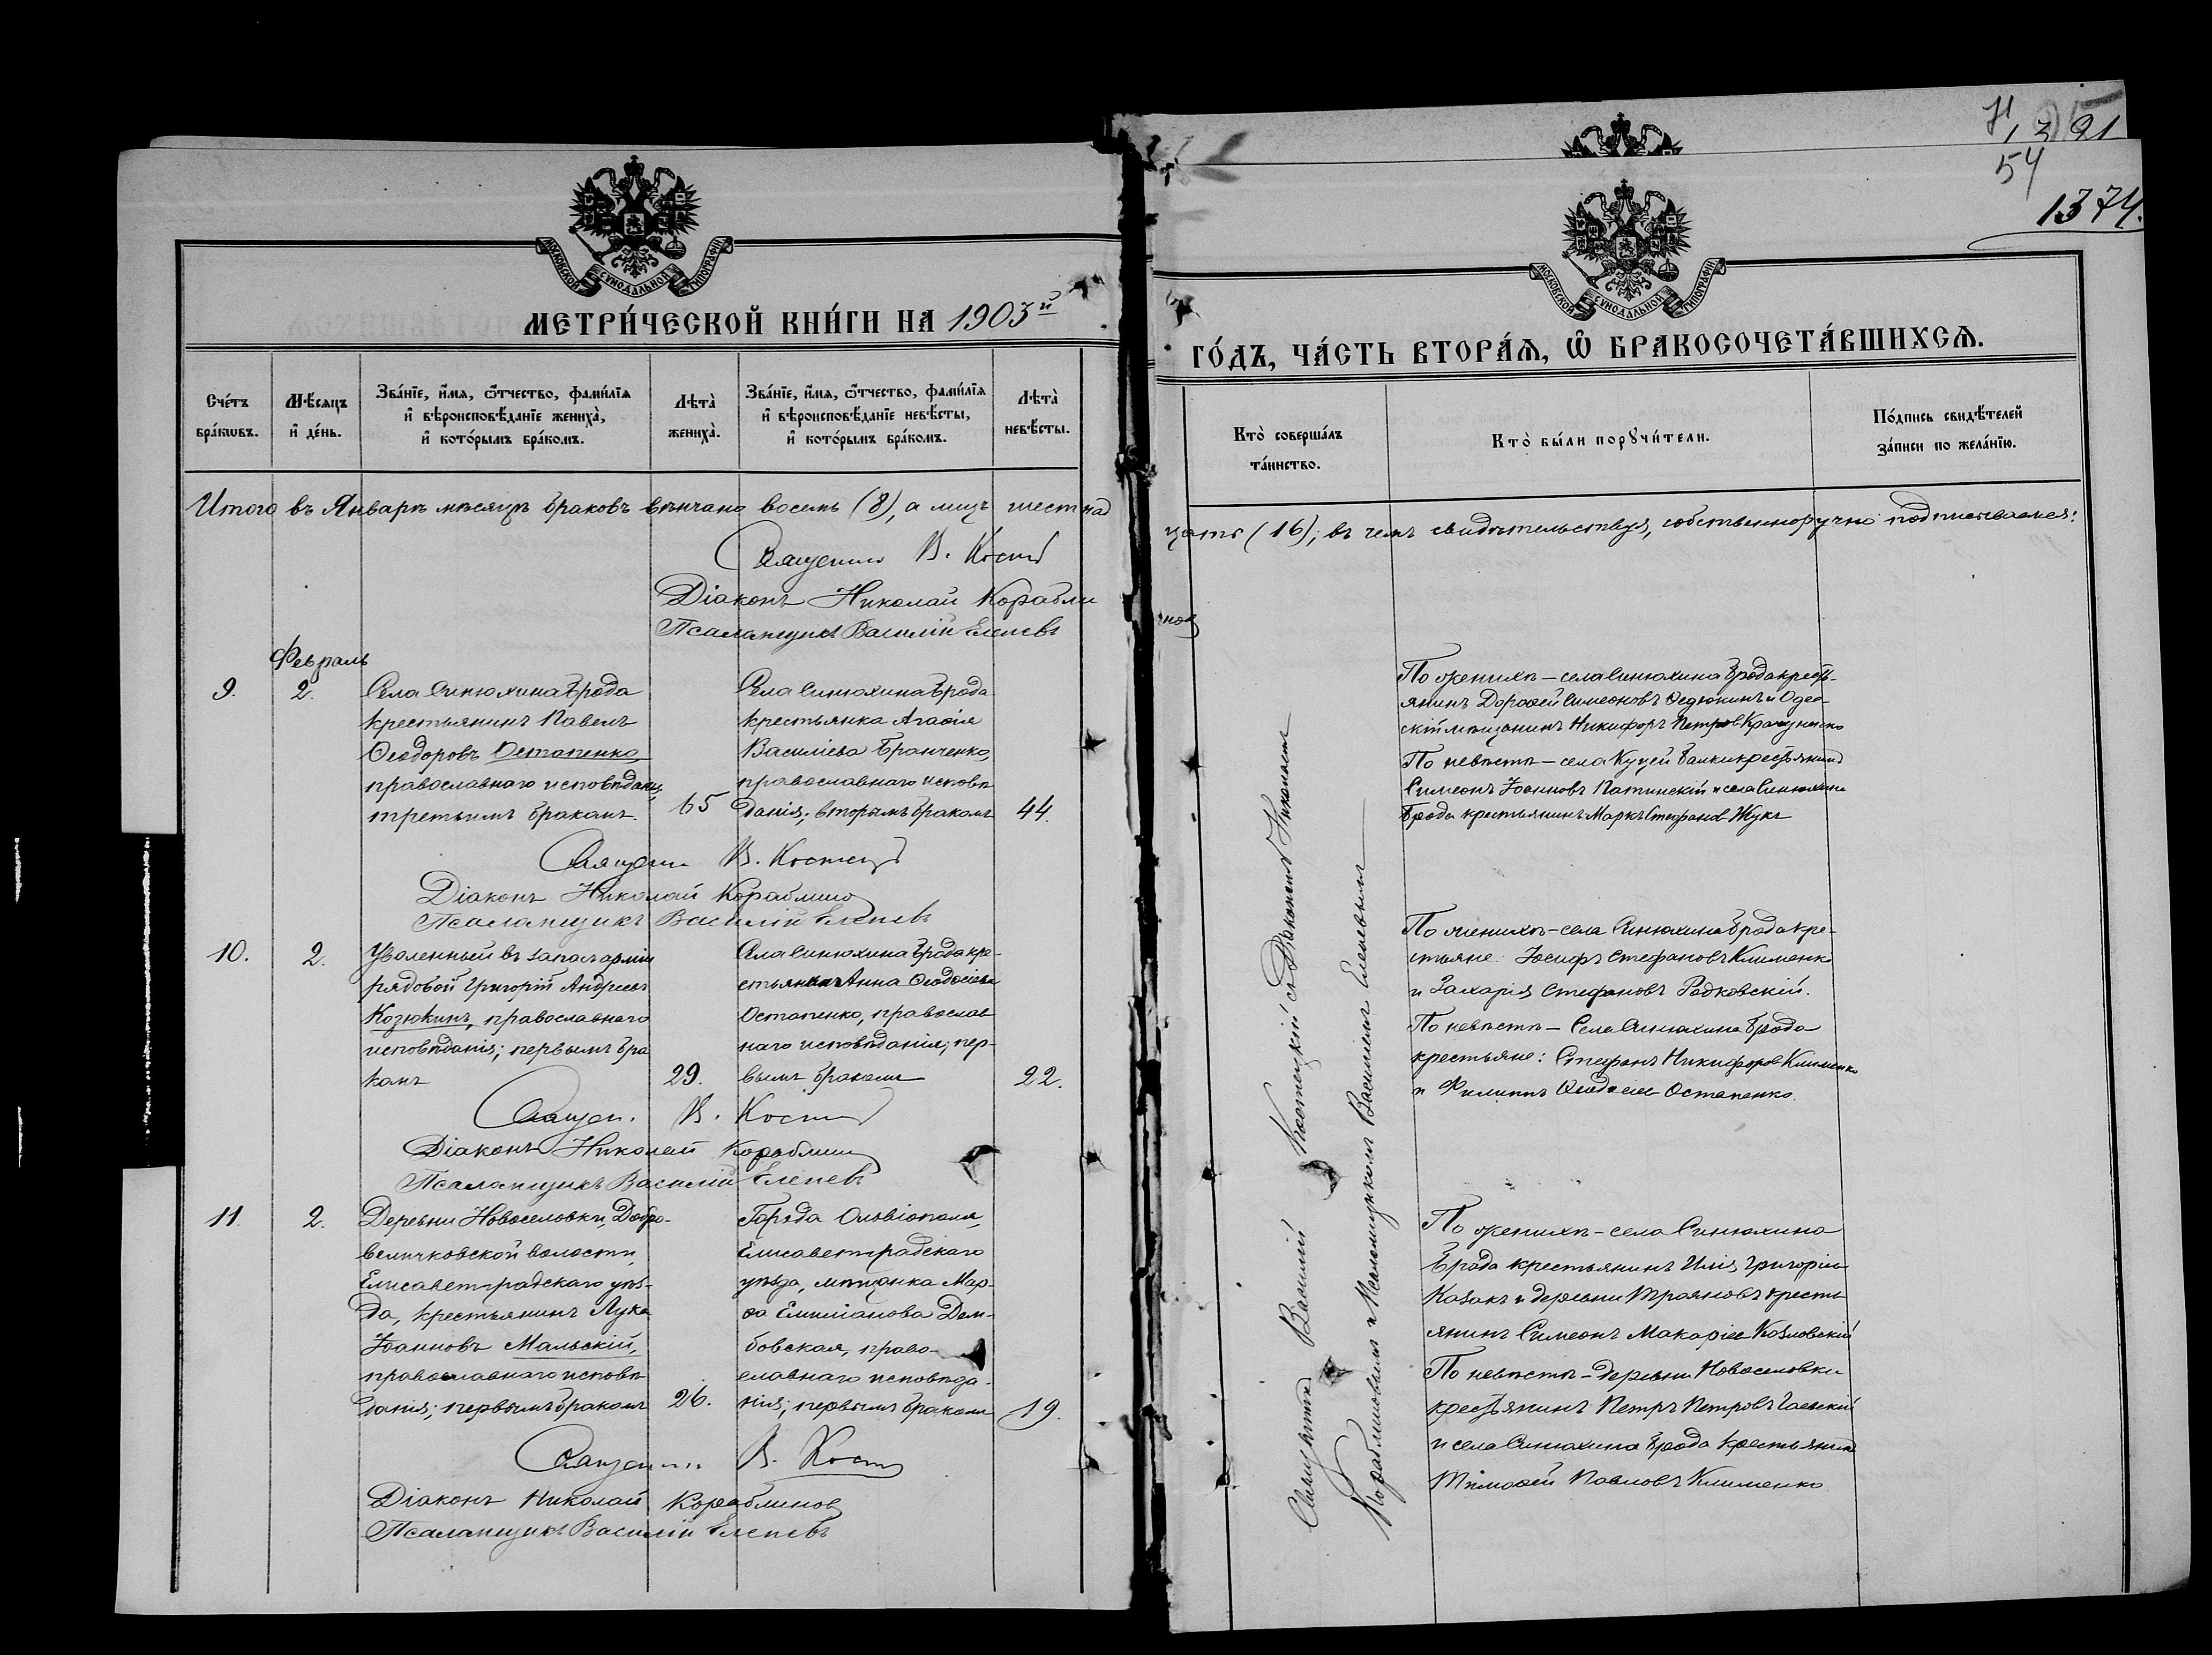 МОСКОВСКОЙ СѴНОДАЛЬНОЙ ТИПОГРАФІИ
МЕТРИ́ЧЕСКОЙ КНИ́ГИ НА 1903й
Сче́тъ бра́кωвъ.
Мѣ́сяцъ и҆ де́нь.
Зва́нїе, и҆́мѧ, ѻ҆́тчество, фами́лїѧ
и҆ вѣроисповѣ́данїе жениха̀,
и҆ кото́рымъ бра́комъ.
Лѣта̀ жениха̀.
Зва́нїе, и҆́мѧ, ѻ҆́тчество, фами́лїѧ
и҆ вѣроисповѣ́данїе невѣ́сты,
и҆ кото́рымъ бра́комъ.
Лѣта̀ невѣ́сты.
Итого въ Январѣ мѣсяцѣ браковъ вѣнчано восемь (8), а лицъ шестнад
В. Кост
Діаконъ Николай Корабли
Псаломщикъ Василій Елепевъ
Февраль
9.
2.
Села Синюхина Брода
крестьянинъ Павелъ
Ѳеодоровъ Остапенко,
православнаго исповѣданія,
третьимъ бракомъ.
65
Села Синюхина Брода
крестьянка Агаѳія
Василіева Бранченко,
православнаго исповѣ
данія; вторымъ бракомъ
44.
В. Костец
Діаконъ Николай Кораблино
Псаломщикъ Василій Елепевъ
10.
2.
Уволенный въ запасъ арміи
рядовой Григорій Андреевъ
Козюкинъ, православнаго
исповѣданія; первымъ бра
комъ
29.
Села Синюхина Брода кре-
стьянка Анна Ѳеодосіева
Остапенко, православ
наго исповѣданія; пер-
вымъ бракомъ
22.
В. Кост
Діаконъ Николай Кораблин
Псаломщикъ Василій Елепевъ
11.
2.
Деревни Новоселовки, Добро-
величковской волости,
Елисаветградскаго уѣз-
да, крестьянинъ Лука
Іоанновъ Мальскій,
православнаго исповѣ
данія; первымъ бракомъ
26.
Города Ольвіополя,
Елисаветградскаго
уѣзда, мѣщанка Мар-
ѳа Емиліанова Дом-
бовская, право-
славнаго исповѣда-
нія; первымъ бракомъ
19.
В. Кост
Діаконъ Николай Кораблинов
Псаломщикъ Василій Елепевъ
91
54
1374.
МОСКОВСКОЙ СѴНОДАЛЬНОЙ ТИПОГРАФІИ
ГО́ДЪ, ЧА́СТЬ ВТОРА́Ѧ, Ѡ҆ БРАКОСОЧЕТА́ВШИХСѦ.
Кто̀ соверша́лъ
та́инство.
Кто̀ бы́ли порꙋчи́тели.
По́дпись свидѣ́телей
за́писи по жела́нїю.
цать (16); въ чемъ свидѣтельствуя, собственноручно подписываемся:
нов
Священникъ Василій Костецкій съ Діакономъ Николаемъ
Кораблиновымъ и Псаломщикомъ Василіемъ Елепевымъ
По женихѣ – села Синюхина Брода кресть-
янинъ Дороѳей Симеоновъ Федюкинъ и Одес-
скій мѣщанинъ Никифоръ Петровъ
По невѣстѣ – села Куцей Балки крестьянинъ
Симеонъ Іоанновъ Патинскій и села Синюхина
Брода крестьянинъ Маркъ Стефановъ Жукъ
По женихѣ – села Синюхина Брода кре-
стьяне: Іосифъ Стефановъ Клименко
и Захарія Стефановъ Радковскій.
По невѣстѣ – Села Синюхина Брода
крестьяне: Стефанъ Никифоровъ Клименко
и Филиппъ Остапенко.
По женихѣ – села Синюхина
Брода крестьянинъ Илія Григоріевъ
Казакъ и деревни Трояновъ кресть
янинъ Симеонъ Макаріев Козловскій
По невѣстѣ – деревни Новоселовки
крестьянинъ Петръ Петровъ Гаевскій
и села Синюхина Брода крестьянинъ
Тимоѳей Павловъ Клименко